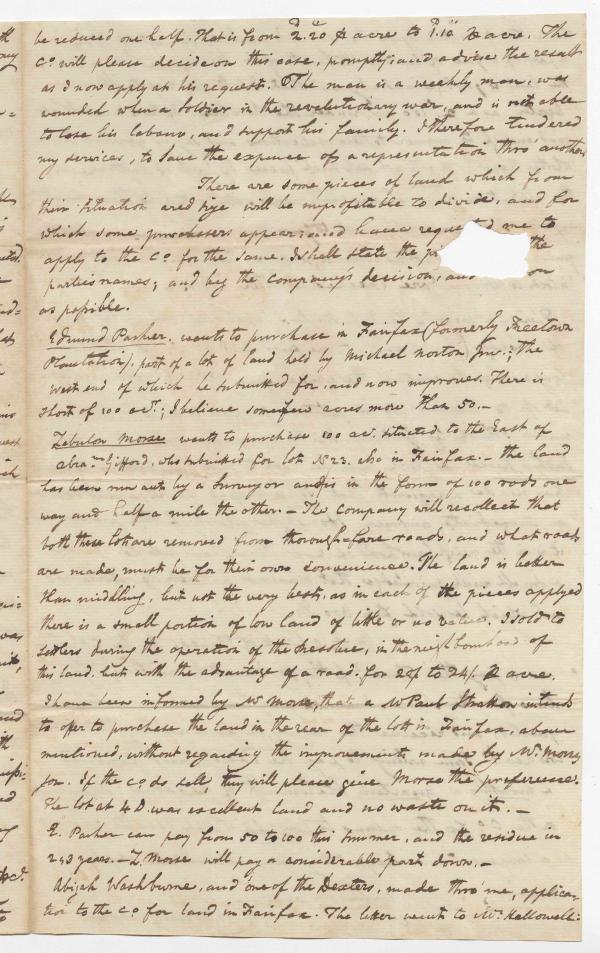 be reduced one half. That is from D.2.20 ⅌ acre to D.1.10 ⅌ acre. The
Co. will please decide on this case, promptly; and advise the result
as I now apply at his request. The man is a weakly man, was
wounded when a Soldier in the revolutionary war, and is not able
to lose his labour, and support his family. I therefore tendered
my services, to save the expence of a representation thro' another
There are some pieces of land which from
their situation and size will be unprofitable to divide, and for
which some purchasers appear: and have requested me to
apply to the Co. for the same. I shall state the the
parties names; and beg the company's decision, and
as possible.
Edmund Parker. wants to purchase in Fairfax (formerly Freetown
Plantation). part of a lot of land held by Michael Norton Junr.; The
West end of which he submitted for, and now improves. There is
short of 100 acrs.; I believe some few acres more than 50.—
Zebulon Morse wants to purchase 100 ac. situated to the East of
Abram. Gifford, who submitted for lot No 23. also in Fairfax.— the land
has been run out by a Surveyor and is in the form of 100 rods one
way and half a mile the other.— The company will recollect that
both these lots are removed from thorough-fare roads, and what roads
are made, must be for their own convenience. The land is better
than middling, but not the very best; as in each of the pieces applyed
there is a small portion of low land of little or no value, I sold to
settlers during the operation of the in the neighbourhood of
this land. but with the advantage of a road. for to 24/. ⅌ acre.
I have been informed by Mr Morse, that a Mr Paul Stratton intends
to offer to purchase the land in the rear of the lots in Fairfax, above
mentioned, without regarding the improvements made by Mr. Morse
jon. If the Co. do sell, they will please give Morse the preference.
The lot at 4 D. was excellent land and no waste on it.—
E. Parker can pay from 50 to 100 this summer, and the residue in
2 & 3 years.— Z. Morse will pay a considerable part down.—
Abijah Washburne, and one of the Dexters, made thro' me, applica-
tion to the Co. for land in Fairfax. The letter went to Mr. Hallowell: